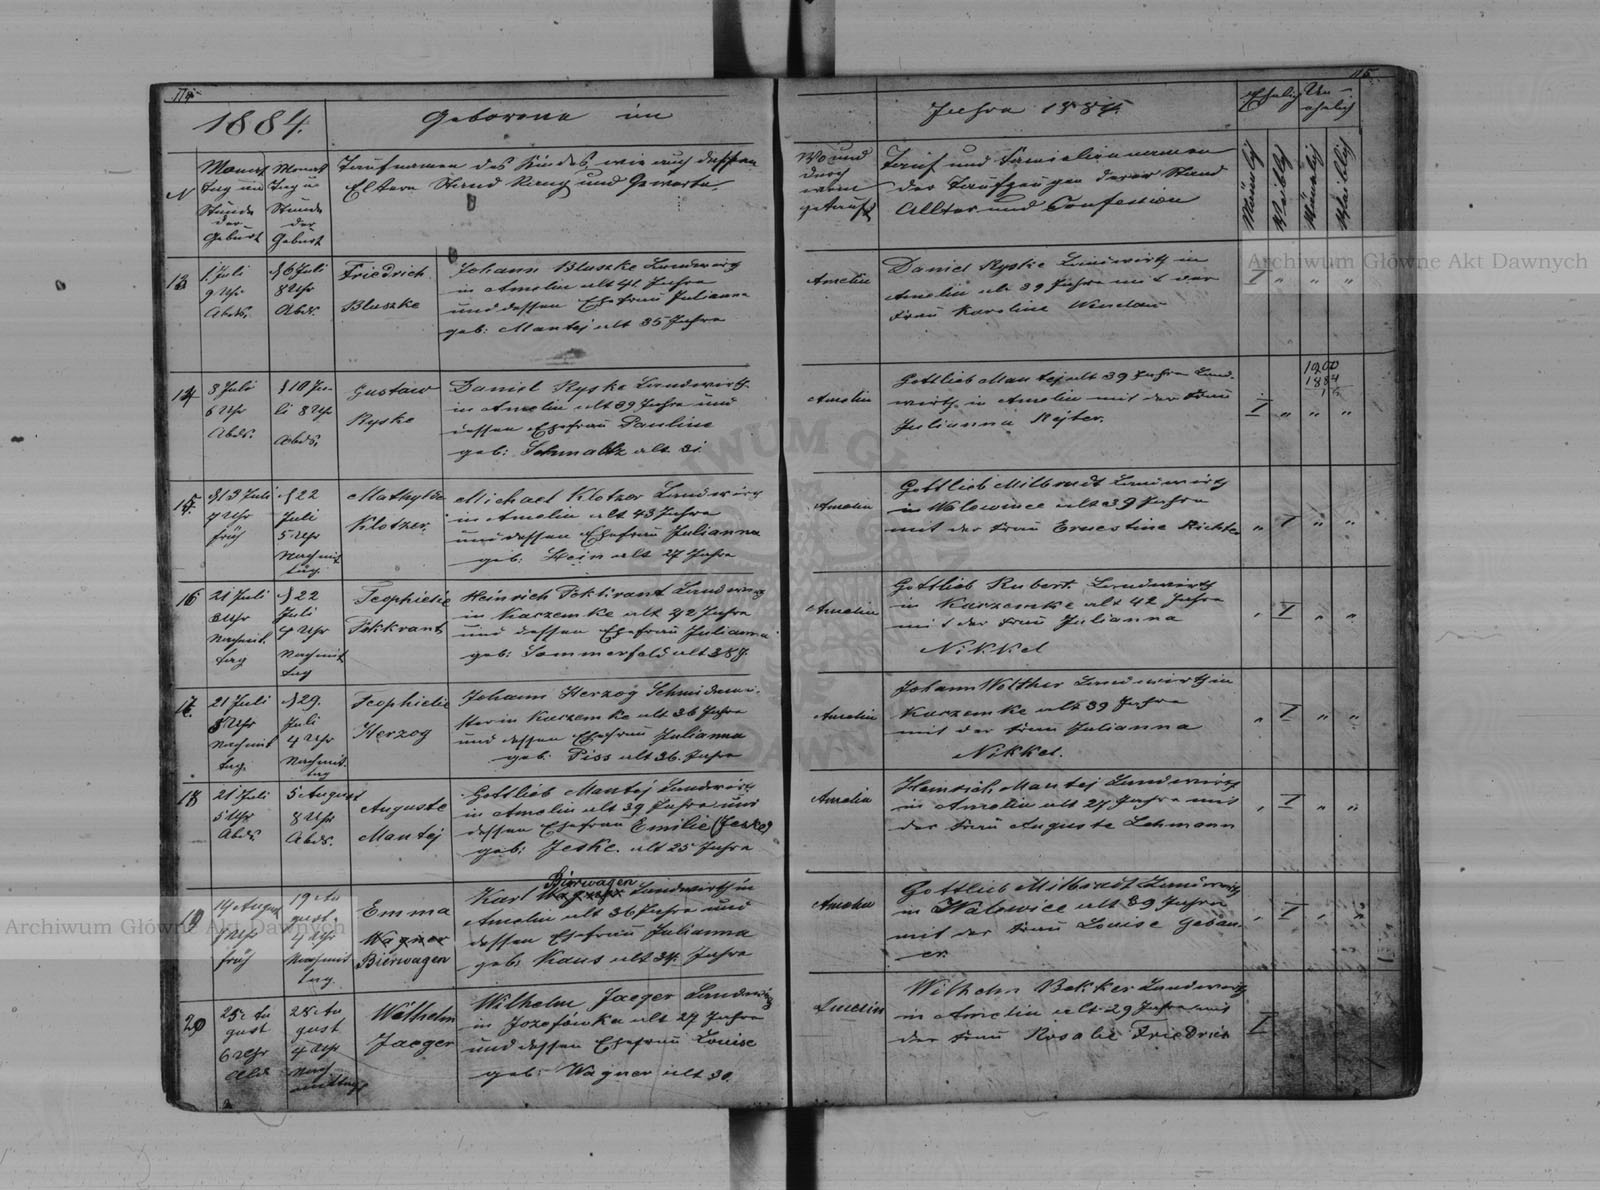 114
1884.
Geborene im
N
Monat
Tag und
Stunde
der
Geburt
Monat
Tag u
Stunde
der
Geburt
Taufnamen des Kindes, wie auch dessen
Eltern Stand Rang und Gewerbe
13
1 Juli
9 Uhr
Abds.
6 Juli
8 Uhr
Abds.
Friedrich
Bluszke
Johann Bluszke Landwirth
in Amelin alt 41 Jahre
und dessen Ehefrau Julianna
geb: Mantej alt 35 Jahre
14
3 Juli
6 Uhr
Abds.
10 Ju-
li 8 Uhr
Abds.
Gustaw
Ryske
Daniel Ryske Landwirth
in Amelin alt 39 Jahre und
dessen Ehefrau Pauline
geb: Schmaltz alt 31.
15
13 Juli
7 Uhr
früh
22
Juli
5 Uhr
Nachmit
tag.
Mathylda
Klotzer
Michael Klotzer Landwirth
in Amelin alt 43 Jahre
und dessen Ehefrau Julianna
geb: Hein alt 27 Jahre
16
21 Juli
Uhr
Nachmit
tag
22
Juli
4 Uhr
Nachmit
tag
Teophielie
Pokkrant
Heinrich Landwirth
in Karzemke alt 42 Jahre
und dessen Ehefrau Julianna
geb: Sommerfeld alt 38 J.
17
21 Juli
3 Uhr
Nachmit
tag.
29.
Juli
4 Uhr
Nachmit.
tag
Teophielie
Herzog
Johann Herzog Schmidemei-
ster in Karzemke alt 36 Jahre
und dessen Ehefrau Julianna
geb: Piss alt 36. Jahre
18
21 Juli
5 Uhr
Abds.
5 August
8 Uhr
Abds.
Auguste
Mantej
Gottlieb Mantej Landwirth
in Amelin alt 39 Jahre und
dessen Ehefrau Emilie (Jeske)
geb: Jeske. alt 25 Jahre
19
14 August
1 Uhr
früh
19 Au
gust.
4 Uhr
Nachmit
tag
Emma
Wagner
Bierwagen
Bierwagen
Karl Wagner Landwirth in
Amelin alt 36 Jahre und
dessen Ehefrau Julianna
geb: Kaus alt 34. Jahre
20
25 Au
gust
6 Uhr
Abds
28 Au
gust
4 Uhr
Nach
mittags
Wilhelm
Jaeger
Wilhelm Jaeger Landwirth
in Jozefówka alt 27 Jahre
und dessen Ehefrau Louise
geb: Wagner alt 30.
115
Jahre 1884.
Wo und
durch
wem
getauft
Tauf und Familiennamen
der Taufzeugen deren Stand
Allter und Confession
Ehelich
Un-
ehelich
Männlich
Weiblich
Männlich
Weiblich
Amelin
Daniel Ryske Landwirth in
Amelin alt 39 Jahre mit der
Frau Karoline Wendau
I " " "
Amelin
Gottlieb Mantej alt 39 Jahre Land-
wirth in Amelin mit der Frau
Julianna Rejter.
1900
1884
16
I " " "
Amelin
Gottlieb Milbradt Landwirth
in Walowice alt 39 Jahre
mit der Frau Ernestine Richter
" I " "
Amelin
Gottlieb Rubert. Landwirth
in Karzemke alt 42 Jahre
mit der Frau Julianna
Nikkel
" I " "
Amelin
Johann Wolther Landwirth in
Karzemke alt 39 Jahre
mit der Frau Julianna
Nikkel.
" I " "
Amelin
Heinrich Mantej Landwirth
in Amelin alt 27 Jahre mit
der Frau Auguste Lehmann
" I " "
Amelin
Gottlieb Milbradt Landwirth
in Walowice alt 39 Jahre
mit der Frau Louise Gebau-
er.
" I " "
Amelin
Wilhelm Bekker Landwirth
in Amelin alt 29 Jahre mit
der Frau Rosalie Friedrich
I
Archiwum Główne Akt Dawnych
Archiwum Główne Akt Dawnych